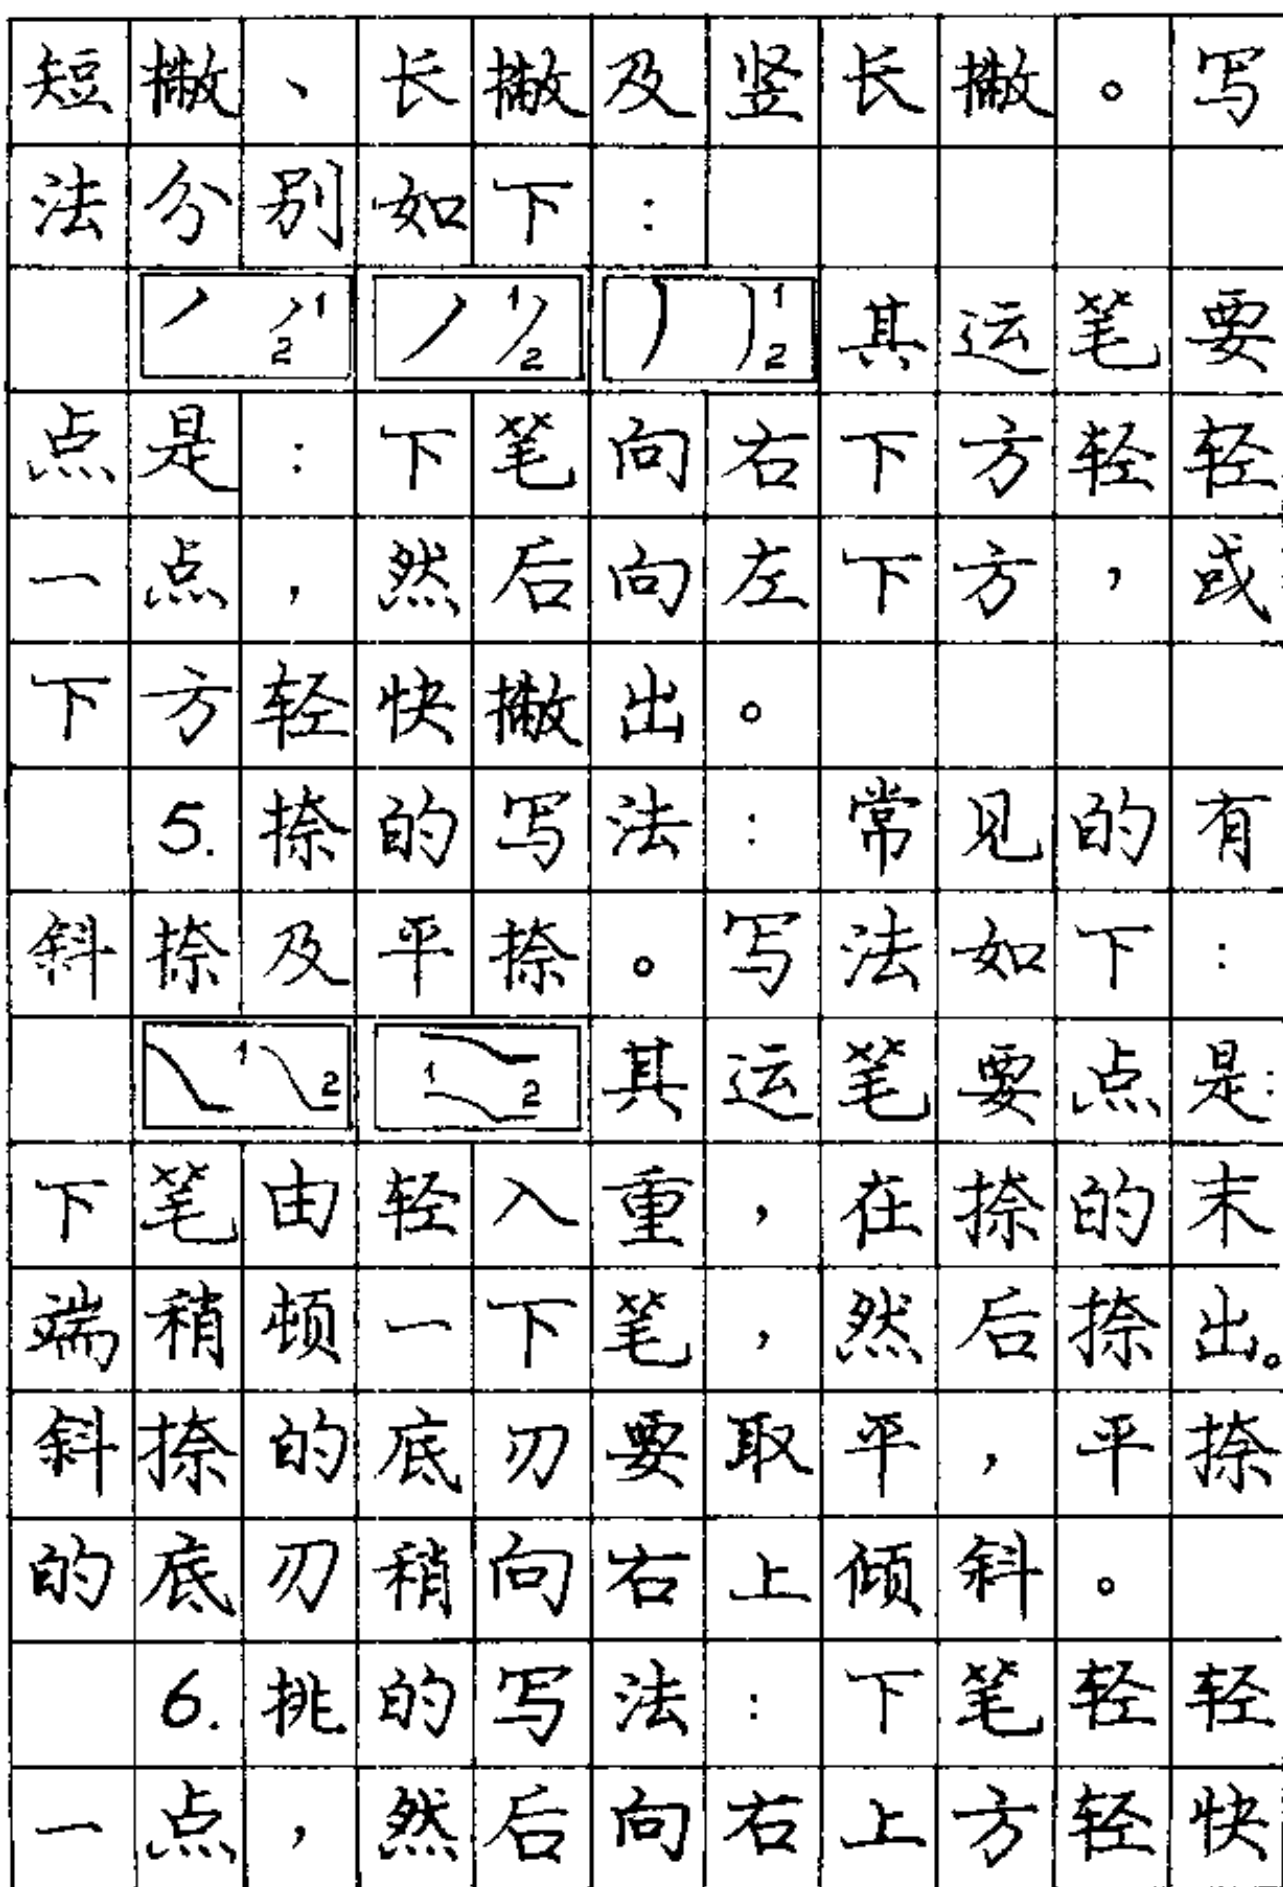 短撇、长撇及竖长撇。写
法分别如下：
1 2 1 2 1 2 其运笔要
点是：下笔向右下方轻轻
一点，然后向左下方，或
下方轻快撇出。
5.捺的写法：常见的有
斜捺及平捺。写法如下：
1 2 1 2 其运笔要点是：
下笔由轻入重，在捺的末
端稍顿一下笔，然后捺出。
斜捺的底刃要取平，平捺
的底刃稍向右上倾斜。
6.挑的写法：下笔轻轻
一点，然后向右上方轻快